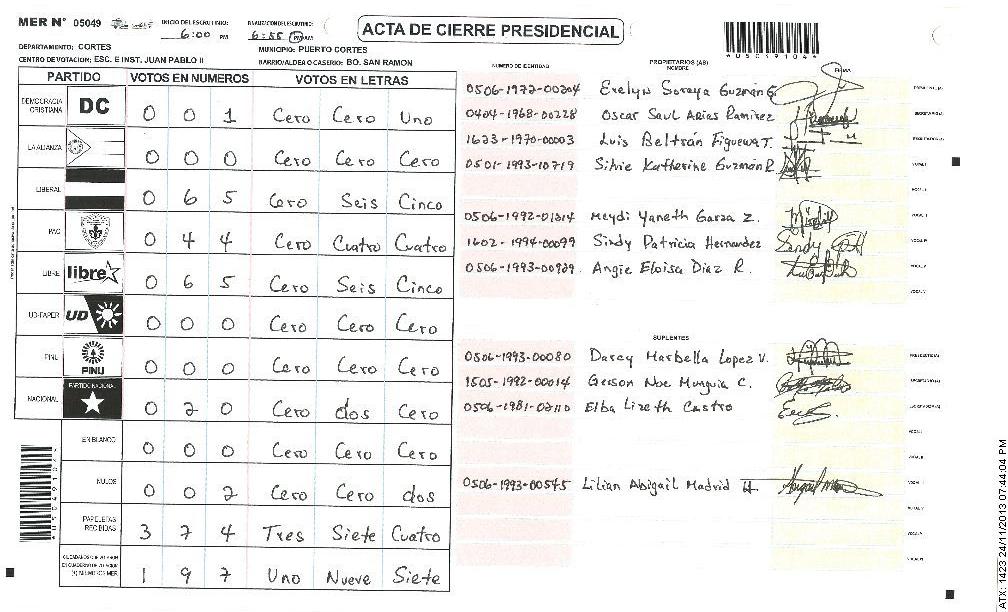 MER Nº 05049
INICIO DEL ESCRUTINIO: 6:00 PM
FINALIZACION DEL ESCRUTINIO: 6:55 PM AM
ACTA DE CIERRE PRESIDENCIAL
*05019104*
DEPARTAMENTO: CORTES
MUNICIPIO: PUERTO CORTES
CENTRO DE VOTACION: ESC. E INST. JUAN PABLO II
BARRIO/ALDEA O CASERIO: BO. SAN RAMON
PARTIDO VOTOS EN NUMEROS VOTOS EN LETRAS
DEMOCRACIA CRISTIANA DC 0 0 1 Cero Cero Uno
LA ALIANZA 0 0 0 Cero Cero Cero
LIBERAL 0 6 5 Cero Seis Cinco
PAC 0 4 4 Cero Cuatro Cuatro
LIBRE libre 0 6 5 Cero Seis Cinco
UD-FAPER UD 0 0 0 Cero Cero Cero
PINU PINU 0 0 0 Cero Cero Cero
NACIONAL PARTIDO NACIONAL 0 2 0 Cero dos Cero
EN BLANCO 0 0 0 Cero Cero Cero
NULOS 0 0 2 Cero Cero dos
PAPELETAS RECIBIDAS 3 7 4 Tres Siete Cuatro
1 9 7 Uno Nueve Siete
NUMERO DE IDENTIDAD
PROPIETARIOS (AS)
NOMBRE
FIRMA
0506-1972-00204 Evelyn Soraya Guzmán G.
0404-1968-00228 Oscar Saul Arias Ramirez
1623-1970-00003 Luis Beltrán Figueroa T.
0501-1993-10719 Silvie Katherine Guzmán R.
0506-1992-01314 Meydi Yaneth Garza Z.
1602-1994-00099 Sindy Patricia Hernandez
0506-1993-00929 Angie Eloisa Diaz R.
SUPLENTES
0506-1993-00080 Darcy Marbella Lopez V.
1505-1992-00014 Gerson Noe Munguia C.
0506-1981-02110 Elba Lizeth Castro
0506-1993-00545 Lilian Abigail Madrid H
ATX: 1423 24/11/2013 07:44:04 PM